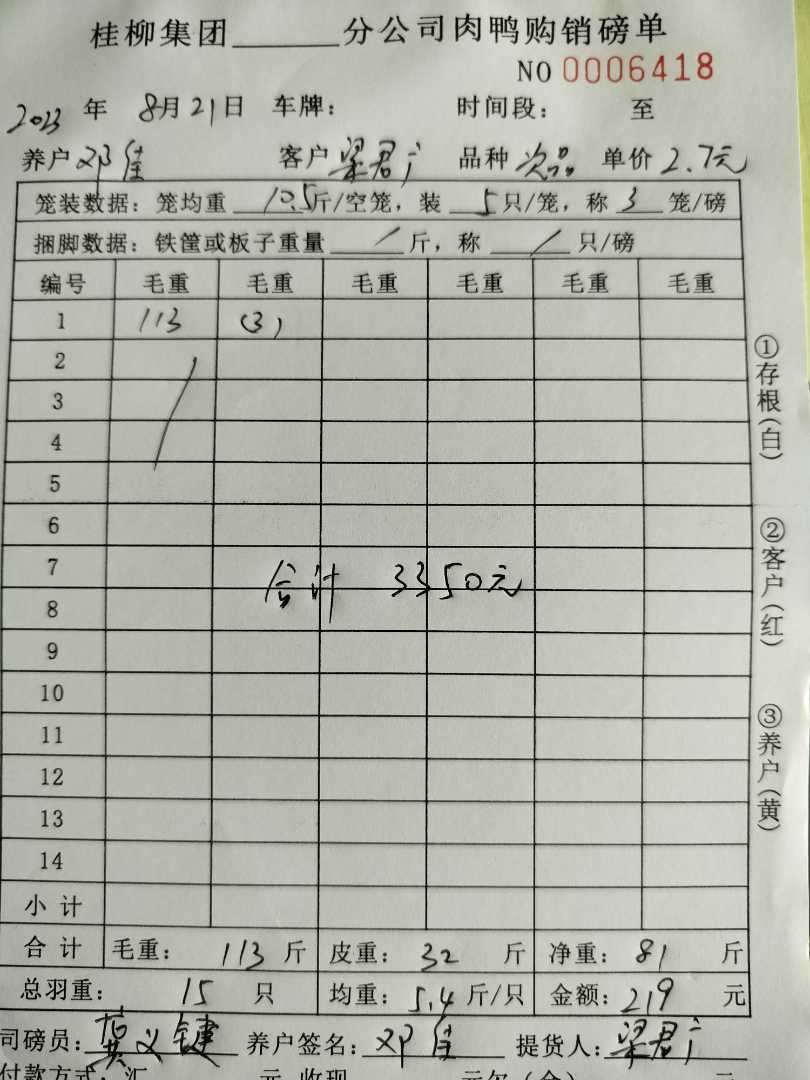 桂柳集团______分公司肉鸭购销磅单
NO 0006418
2023 年 8月21日 车牌： 时间段： 至
养户 邓佳 客户 梁君广 品种 次品 单价 2.7元
笼装数据：笼均重 10.5斤/空笼，装 5只/笼，称 3 笼/磅
捆脚数据：铁筐或板子重量 / 斤，称 / 只/磅
编号 毛重 毛重 毛重 毛重 毛重 毛重
1 113 (3)
2
3
4
5
6
7
合计 3350元
8
9
10
11
12
13
14
小计
合计 毛重： 113 斤 皮重： 32 斤 净重： 81 斤
总羽重： 15 只 均重： 5.4 斤/只 金额： 219 元
司磅员： 黄义键 养户签名： 邓佳 提货人： 梁君广
付款方式：汇 元 收现 元欠（合） 元
①存根（白）
②客户（红）
③养户（黄）